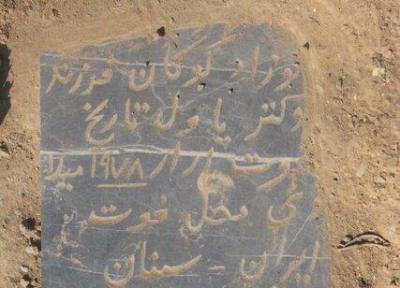 نوزاد کوگان فرزند
دکتر پاول تاریخ
فوت ۱ر۱ر۱۹۷۸ میلا
دی محل فوت
ایران - سمنان